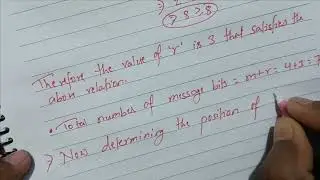 ≥ 8 ≥ 8
Therefore the value of 'r' is 3 that satisfies the
above relation.
• Total number of message bits = m+r = 4+3 = 7
⇒ Now determining the position of